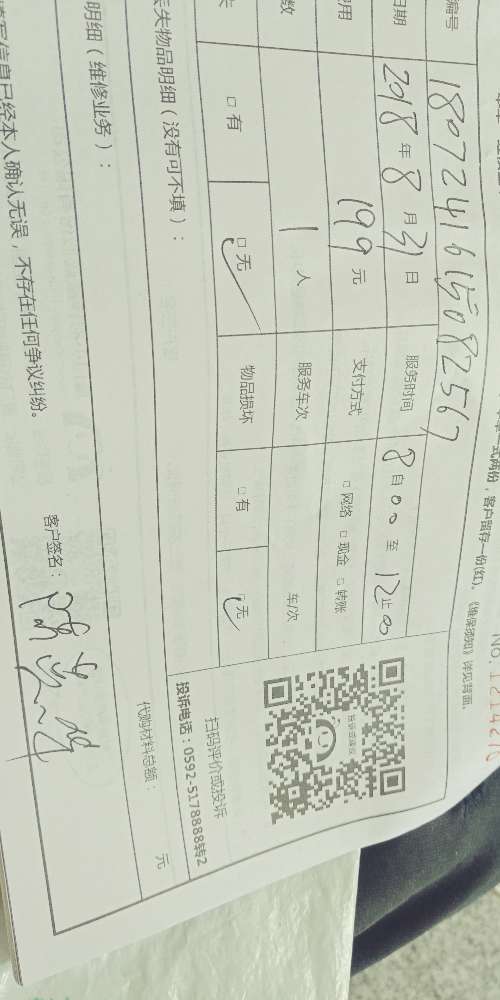 NO.1214270
式两份，客户留存一份(红)。《维保须知》详见背面.
编号 1807241615082567
日期 2018年8月31日 服务时间 8自00至12止00
用 199元 支付方式 □网络 □现金 □转账
数 1人 服务车次 车/次
□有 □无 物品损坏 □有 □无
失物品明细（没有可不填）：
明细（维修业务）：
扫码评价或投诉
投诉电话：0592-5178888转2
代购材料总额： 元
信息已经本人确认无误，不存在任何争议纠纷。
客户签名：